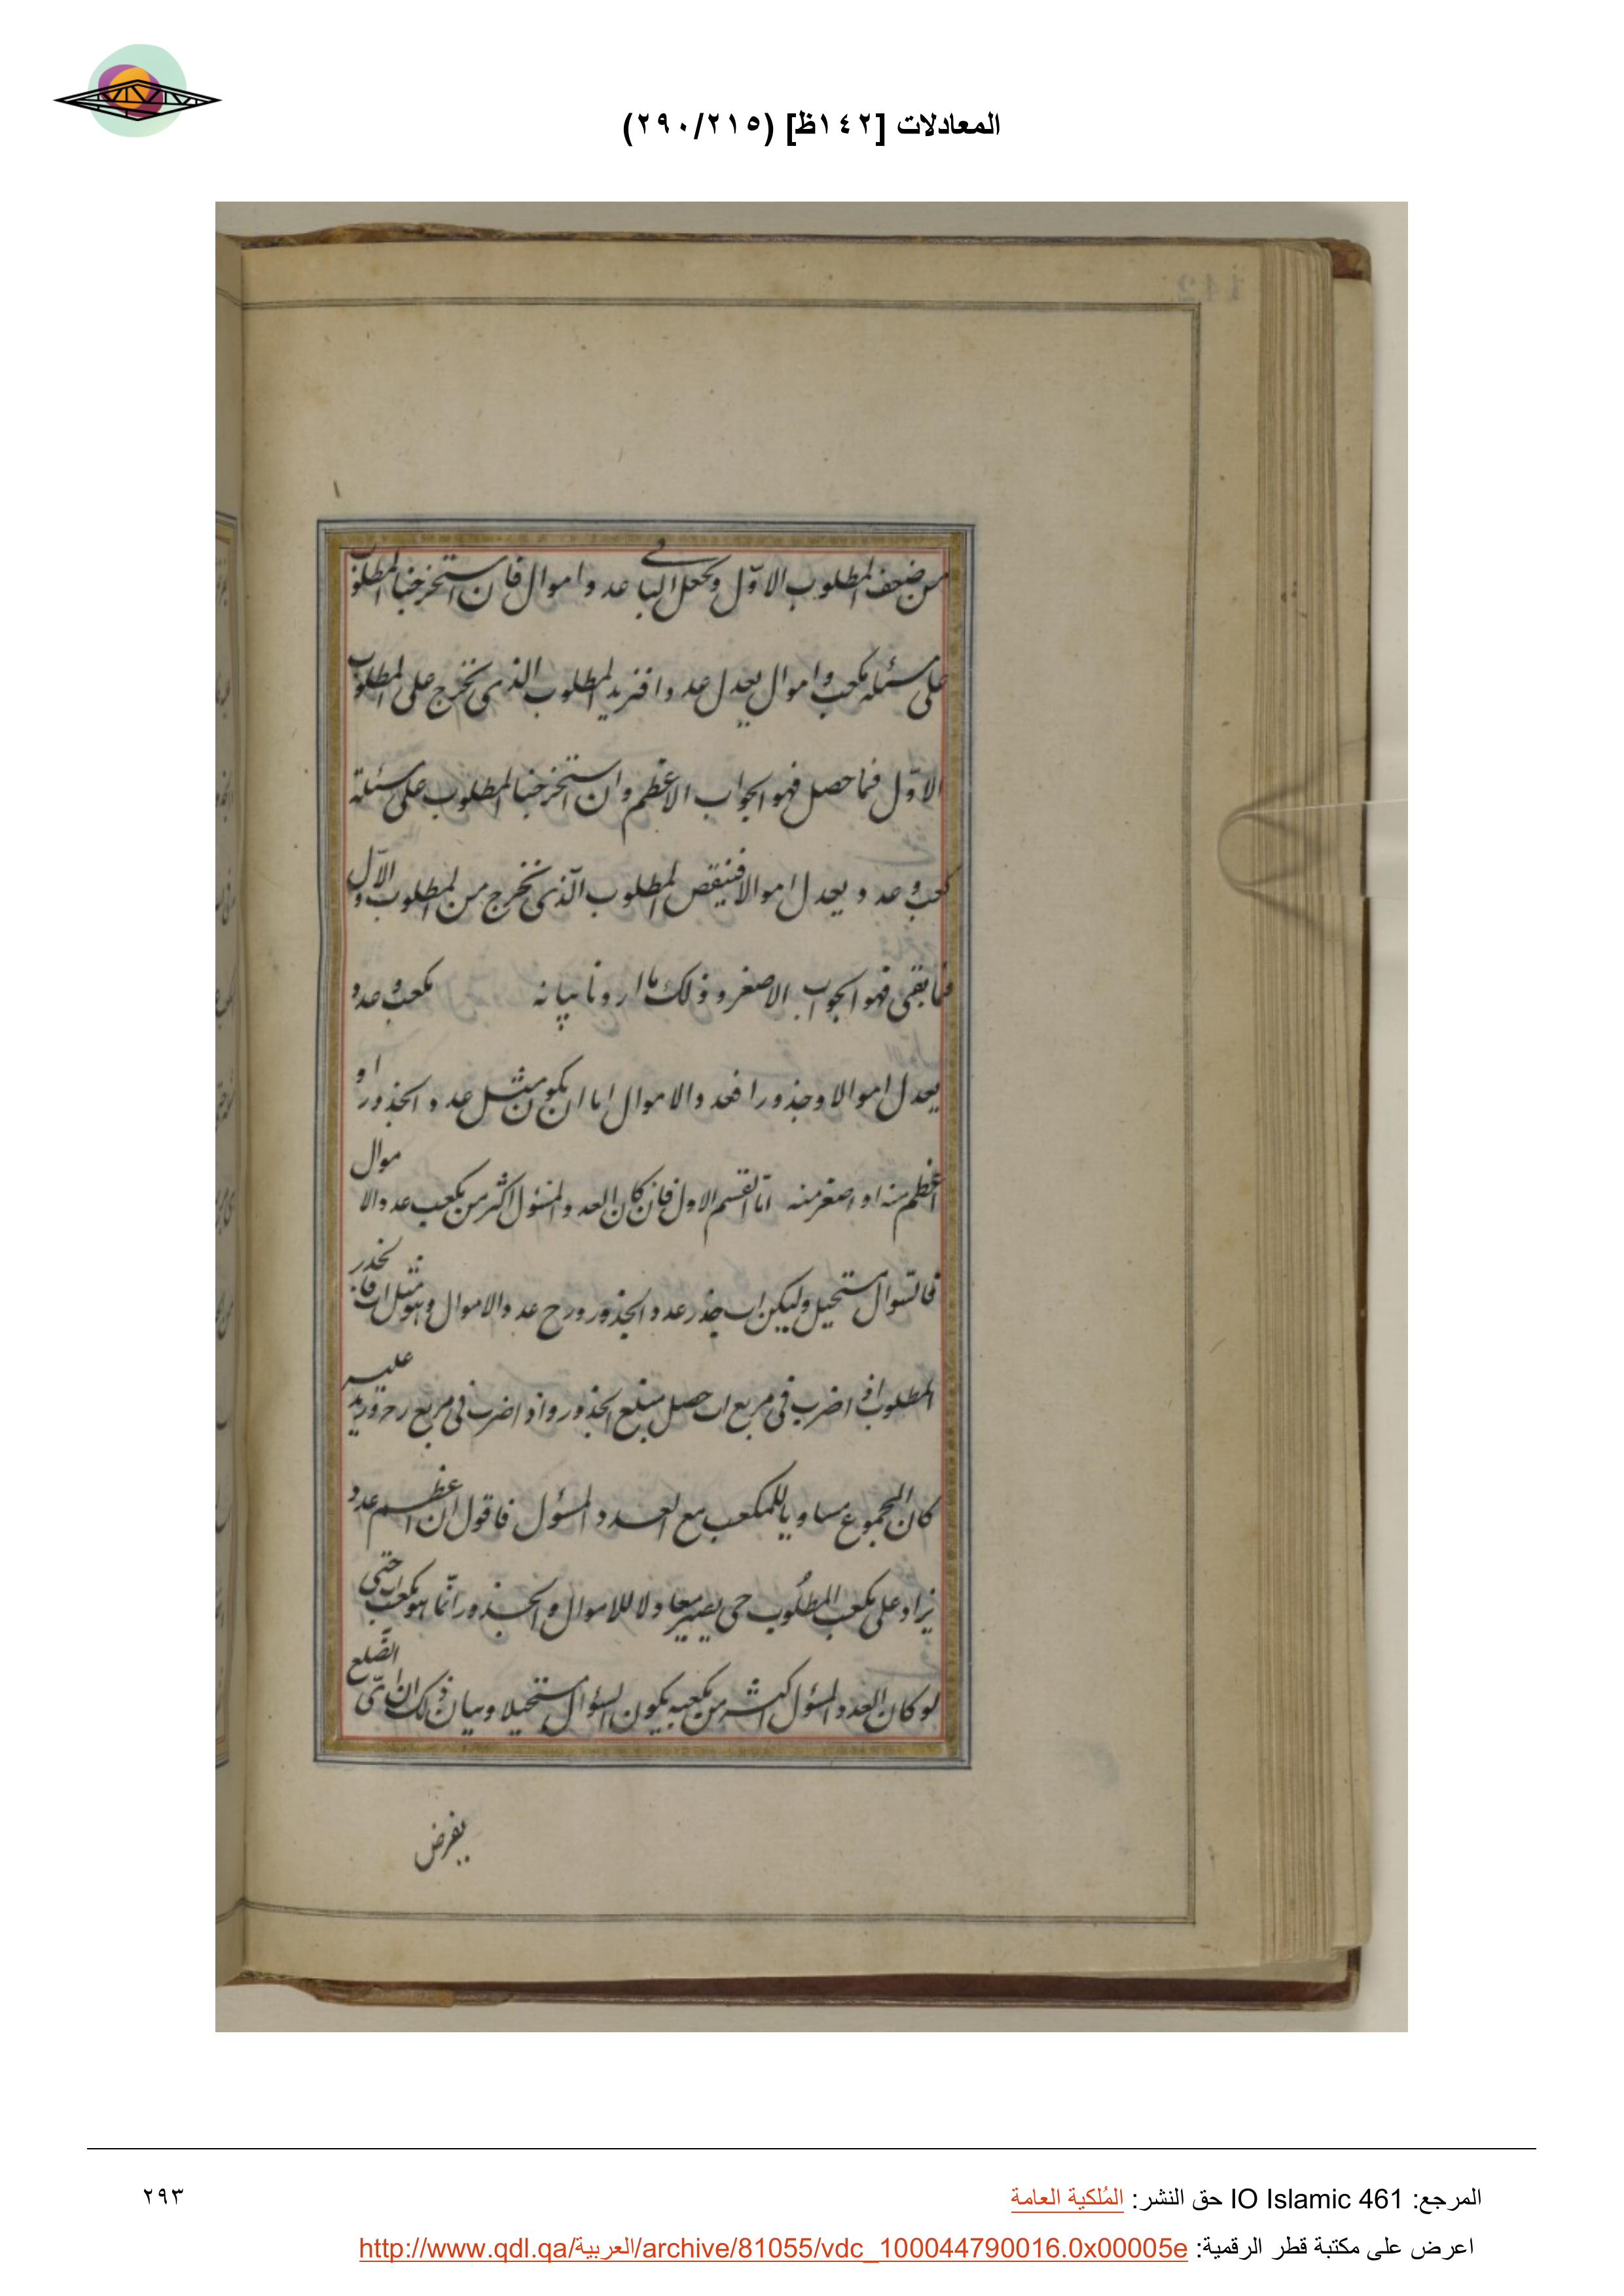 المعادلات [١٤٢ظ] (٢٩٠/٢١٥)
من ضعف المطلوب الاوّل ونجعل الباقي عدد اموال فان استخرجنا المطلوب
على مسئلة مكعب واموال يعدل عددا فنزيد المطلوب الذى يخرج على المطلوب
الاوّل فما حصل فهو الجواب الاعظم وان استخرجنا المطلوب على مسئلة
كعب وعدد يعدل اموالا فنيقص المطلوب الّذى نخرج من المطلوب الاول
فما بقى فهو الجواب الاصغر وذلك ما اردنا بيانه مكعب وعدد
يعدل اموالا وجذورا فعدد الاموال اما ان يكون مثل عدد الجذور او
اعظم منه او اصغر منه امّا القسم الاول فان كان العدد المسئول اكثر من مكعب عدد الاموال
فالسؤال مستحيل وليكن اب جذر عدد الجذور و رح عدد الاموال وهو مثل اب فا
المطلوب اذا ضرب فى مربع اب حصل مبلغ الجذور واذا ضرب فى مربع رح وزيد عليه
كان المجموع مساويا للمكعب مع العدد المسؤل فاقول ان اعظم عدد
يزاد على مكعب المطلُوب حى يصير معادلا للاموال والجذور انّما هو مكعب اب حتى
لو كان العدد المسؤل اكثر من مكعبه يكون السؤال مستحيلا وبيان ذلك ان اىّ الضّلع
يفرض
المرجع: IO Islamic 461 حق النشر: المُلكية العامة
٢٩٣
اعرض على مكتبة قطر الرقمية: http://www.qdl.qa/العربية/archive/81055/vdc_100044790016.0x00005e